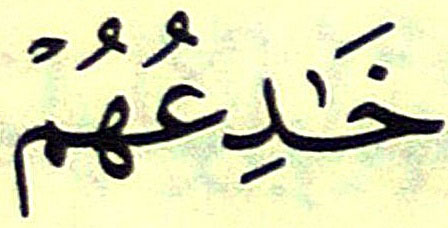 خَـٰدِعُهُمْ